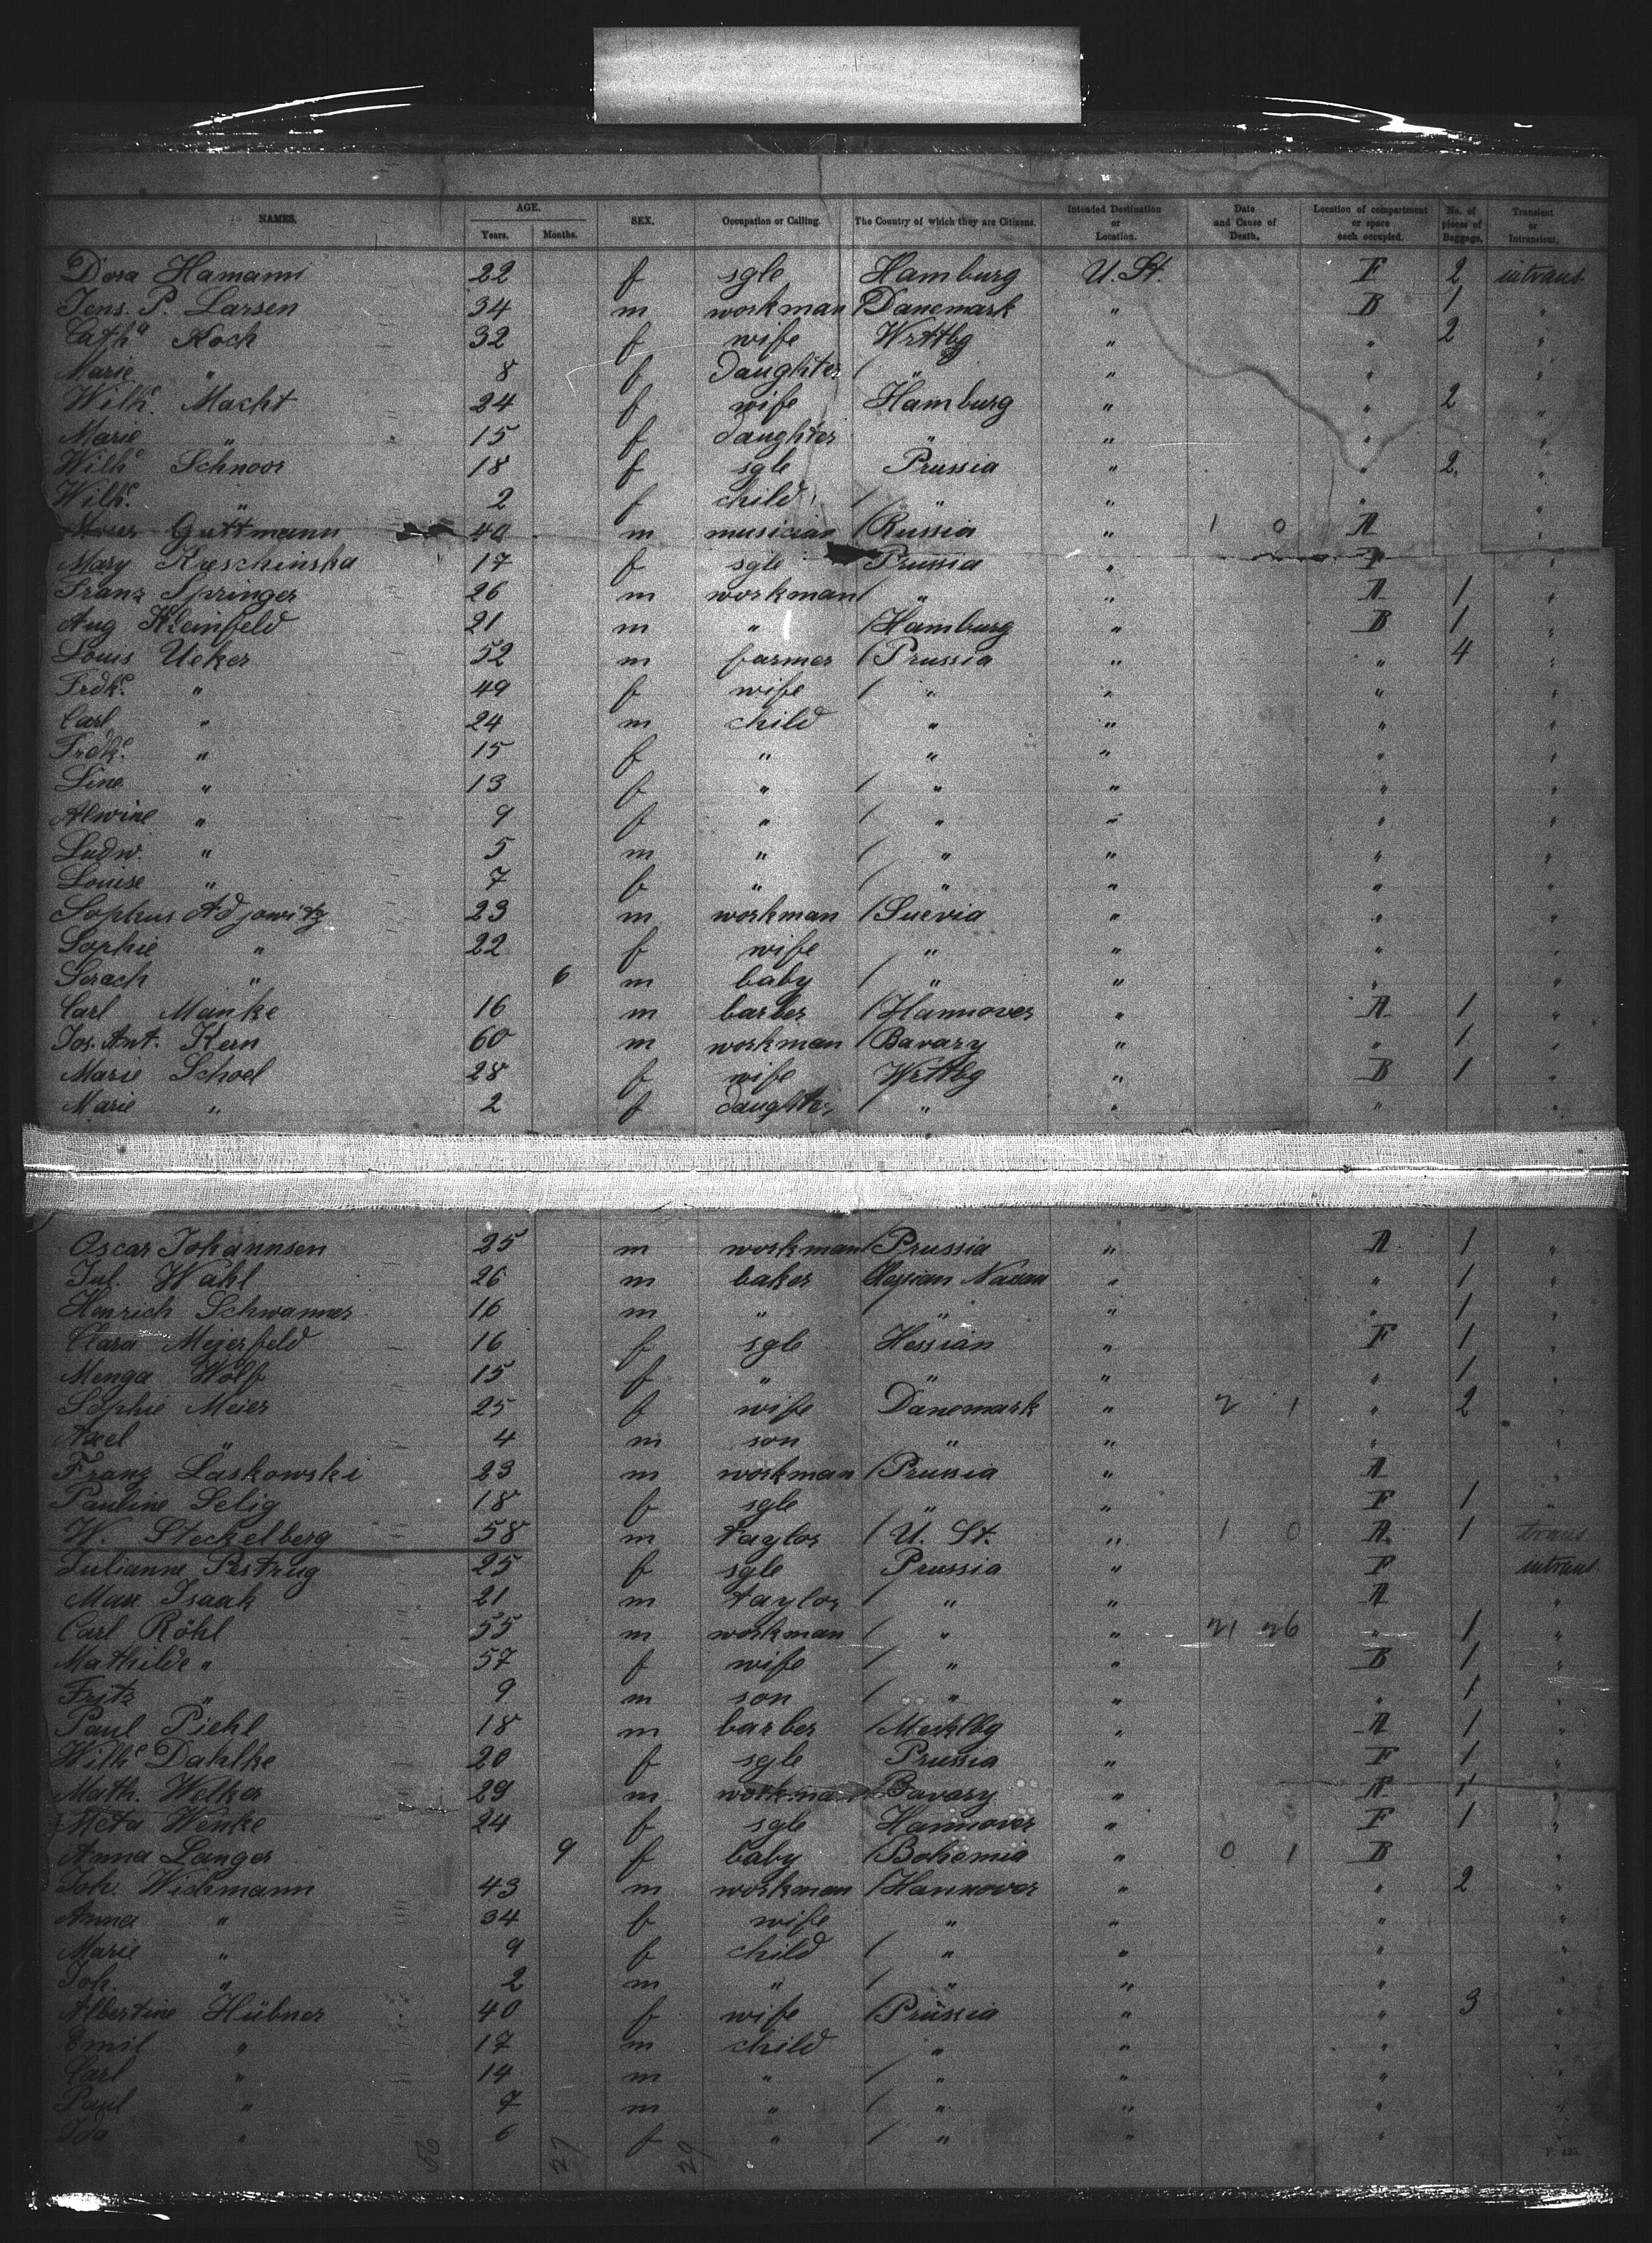 NAMES. AGE. Years. Months. SEX. Occupation or Calling. The Country of which they are Citizens. Intended Destination or Location. Date and Cause of Death. Location of compartment or space each occupied. No. of pieces of Baggage. Transient or Intransient.
Dora Hamann 22 f sgle Hamburg U. St. F 2 intrans.
Jens. P. Larsen 34 m workman / Danemark " B 1 "
Cath^a Koch 32 f wife Wrttbg " " 2 "
Marie " 8 f daughter / " " " "
Wilh^e. Macht 24 f wife Hamburg " " 2 "
Marie " 15 f daughter " " " "
Wilh^e Schnoor 18 f sgle Prussia " " 2 "
Wilh^e. " 2 f child / " " " "
Moses Guttmann 40 m musician / Russia " 1 0 A "
Mary Kreschinska 17 f sgle Prussia " F "
Franz Springer 26 m workman / " " A 1 "
Aug Kleinfeld 21 m " / Hamburg " B 1 "
Louis Ueker 52 m farmer / Prussia " " 4 "
Frdk^e. " 49 f wife / " " " "
Carl " 24 m child " " " "
Frdk^e. " 15 f " " " " "
Line " 13 f " / " " " "
Alwine " 9 f " / " " " "
Ludw. " 5 m " / " " " "
Louise " 7 f " / " " " "
Sophus Adjowitz 23 m workman / Suevia " " "
Sophie " 22 f wife " " " "
Serach " 6 m baby / " " " "
Carl Manke 16 m barber / Hannover " A 1 "
Jos. Ant. Kern 60 m workman / Bavary " " 1 "
Marie Schoel 28 f wife Wrttbg " B 1 "
Marie " 2 f daughter / " " " "
Oscar Johannsen 25 m workman / Prussia " A 1 "
Jul. Wahl 26 m baker Nassau " " 1 "
Henrich Schwanner 16 m " / " " " 1 "
Clara Meierfeld 16 f sgle Hessian " F 1 "
Menga Wolf 15 f " " " " 1 "
Sophie Meier 25 f wife Danemark " 2 1 " 2 "
Axel " 4 m son " " " "
Franz Laskowski 23 m workman / Prussia " A "
Pauline Selig 18 f sgle " " F 1 "
W. Steckelberg 58 m taylor / U. St. " 1 0 A 1 trans
Julianne Pestrug 25 f sgle Prussia " F intrans.
Max Isaak 21 m taylor / " " A "
Carl Röhl 55 m workman / " " 21 26 " 1 "
Mathilde " 57 f wife / " " B 1 "
Fritz " 9 m son / " " " 1 "
Paul Piehl 18 m barber / Mecklbg " A 1 "
Wilh^e Dahlke 20 f sgle Prussia " F 1 "
Math. Welker 29 m workman Bavary " A 1 "
Meta Wenke 24 f sgle Hannover " F 1 "
Anna Langer 9 f baby / Bohemia " 0 1 B "
Joh. Wichmann 43 m workman / Hannover " " 2 "
Anna " 34 f wife " " " "
Marie " 9 f child / " " " "
Joh. " 2 m " / " " " "
Albertine Hübner 40 f wife / Prussia " " 3 "
Emil " 17 m child " " " "
Carl " 14 m " / " " " "
Paul " 7 m " / " " " "
Ida " 6 f " / " " "
56 27 29